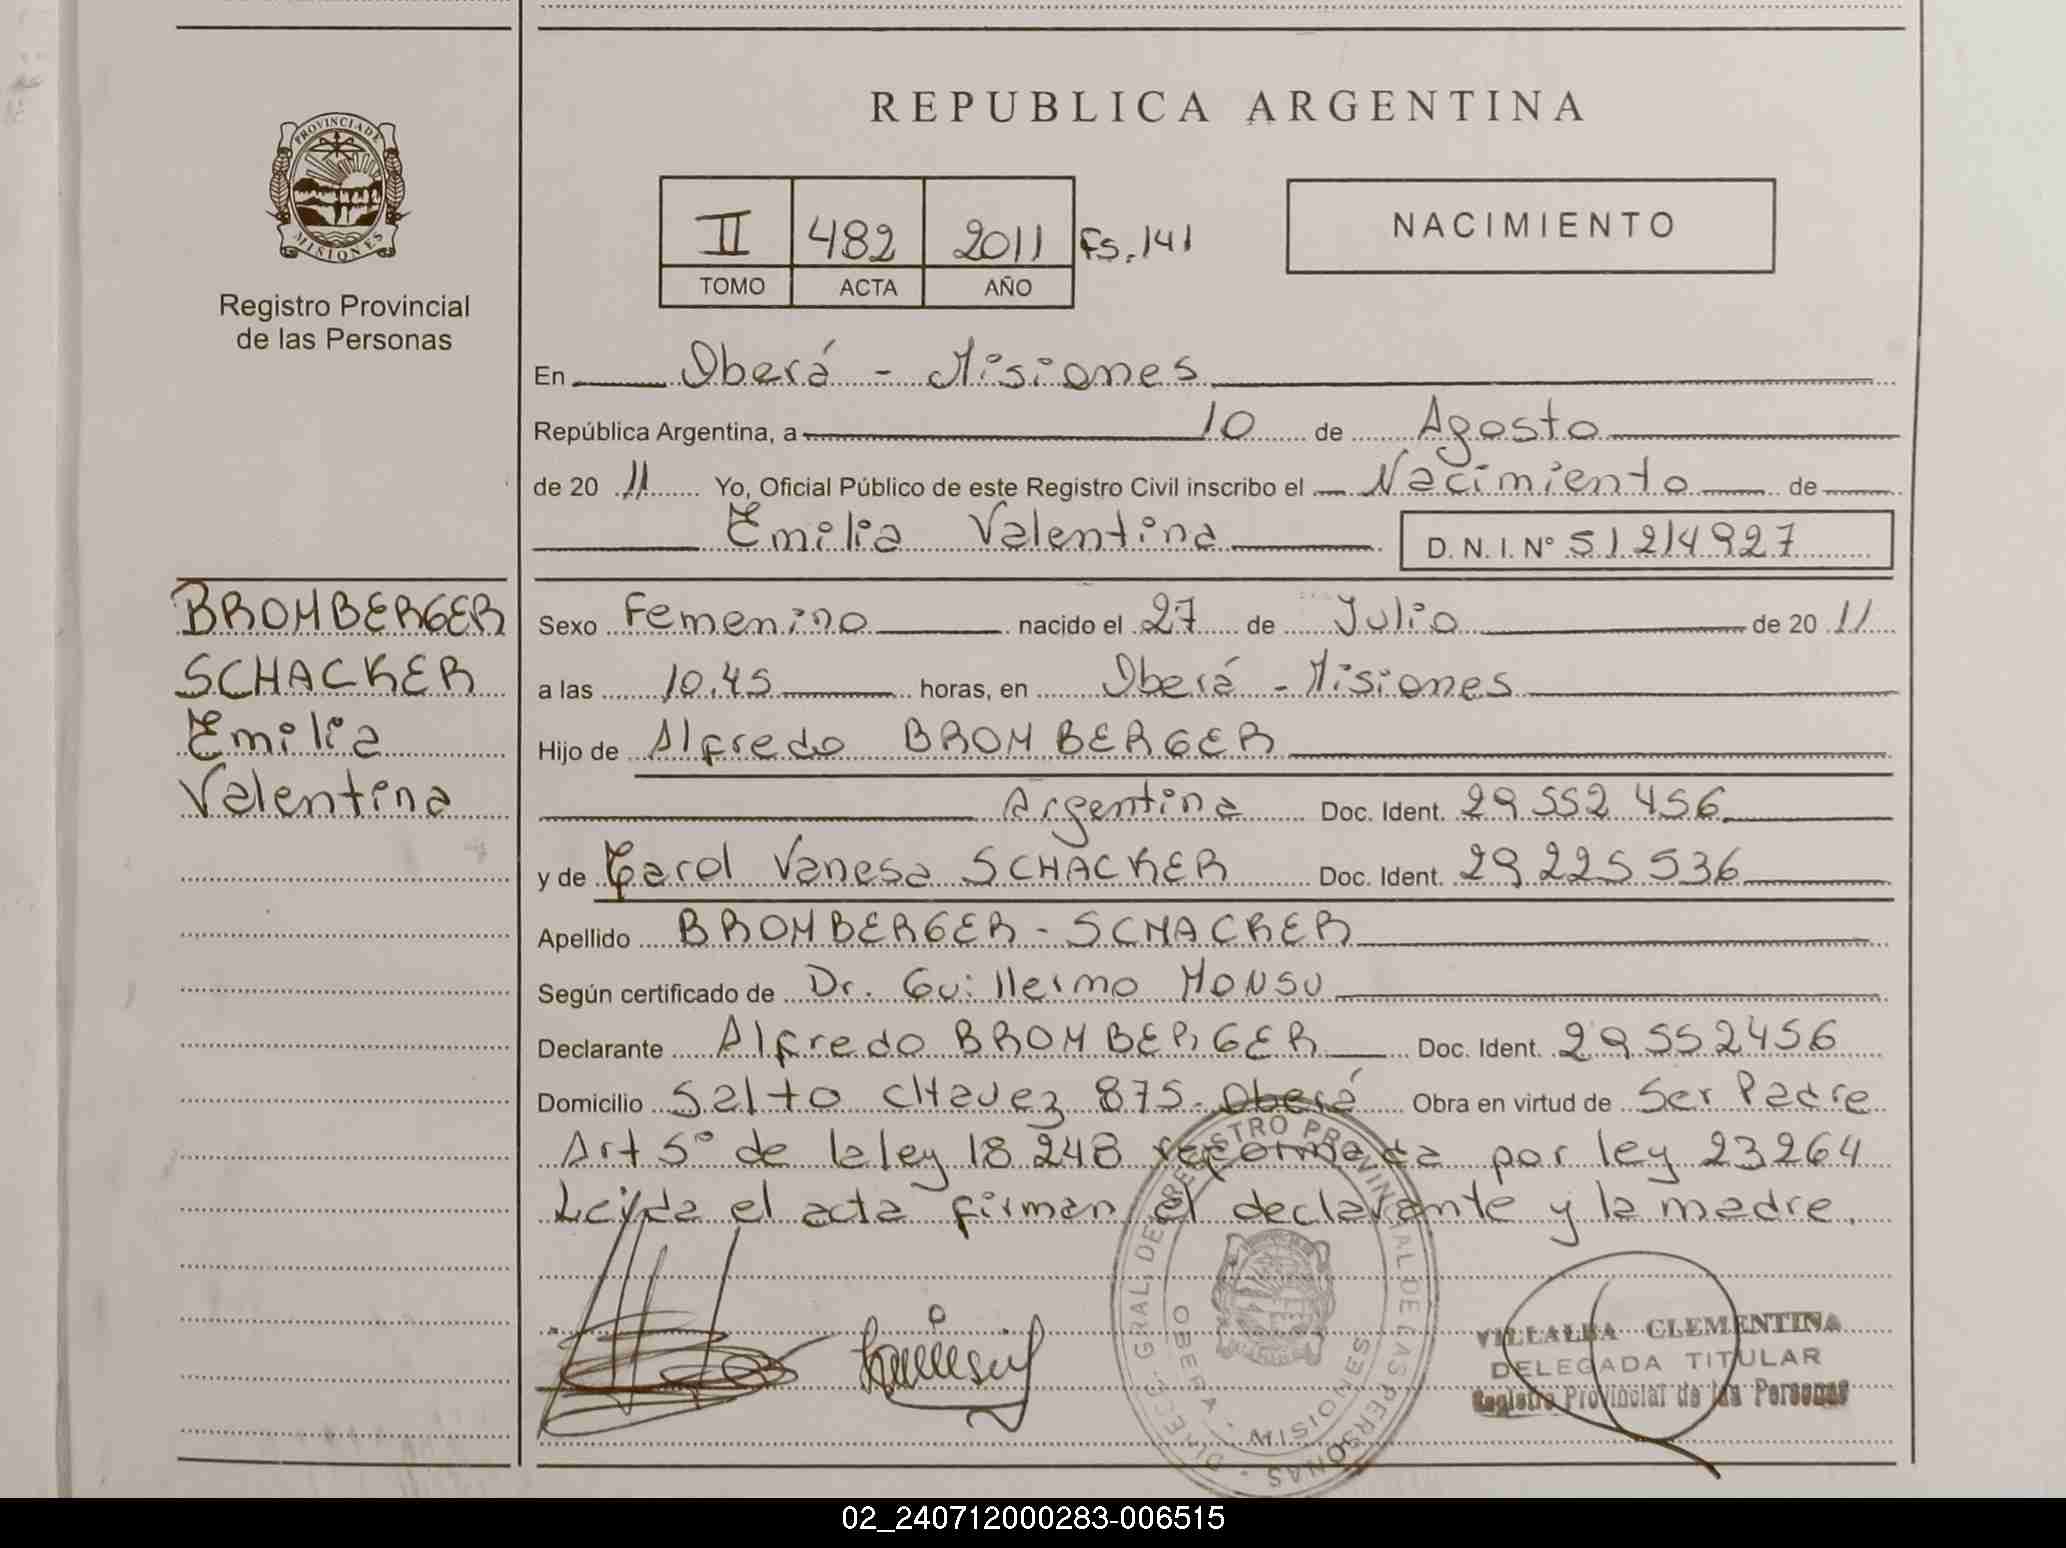 REPUBLICA ARGENTINA
PROVINCIA DE
MISIONES
Registro Provincial
de las Personas
II 482 2011 Fs. 141
TOMO ACTA AÑO
NACIMIENTO
En Oberá - Misiones
República Argentina, a 10 de Agosto
de 20 11 Yo, Oficial Público de este Registro Civil inscribo el Nacimiento de
Emilia Valentina D. N. I. N° 51214927
BROMBERGER
SCHACKER
Emilia
Valentina
Sexo Femenino nacido el 27 de Julio de 20 11
a las 10.45 horas, en Oberá - Misiones
Hijo de Alfredo BROMBERGER
Argentina Doc. Ident. 29 552 456
y de Carol Vanesa SCHACKER Doc. Ident. 29 225 536
Apellido BROMBERGER - SCHACKER
Según certificado de Dr. Guillermo MONSU
Declarante Alfredo BROMBERGER Doc. Ident. 29552456
Domicilio Salto CHavez 875 - Oberá Obra en virtud de Ser Padre
Art 5° de la ley 18 248 reformada por ley 23264
Leída el acta firman el declarante y la madre.
DIREC. GRAL. DE REGISTRO PROVINCIAL DE LAS PERSONAS
OBERA - MISIONES
VILLALBA CLEMENTINA
DELEGADA TITULAR
Registro Provincial de las Personas
02_240712000283-006515